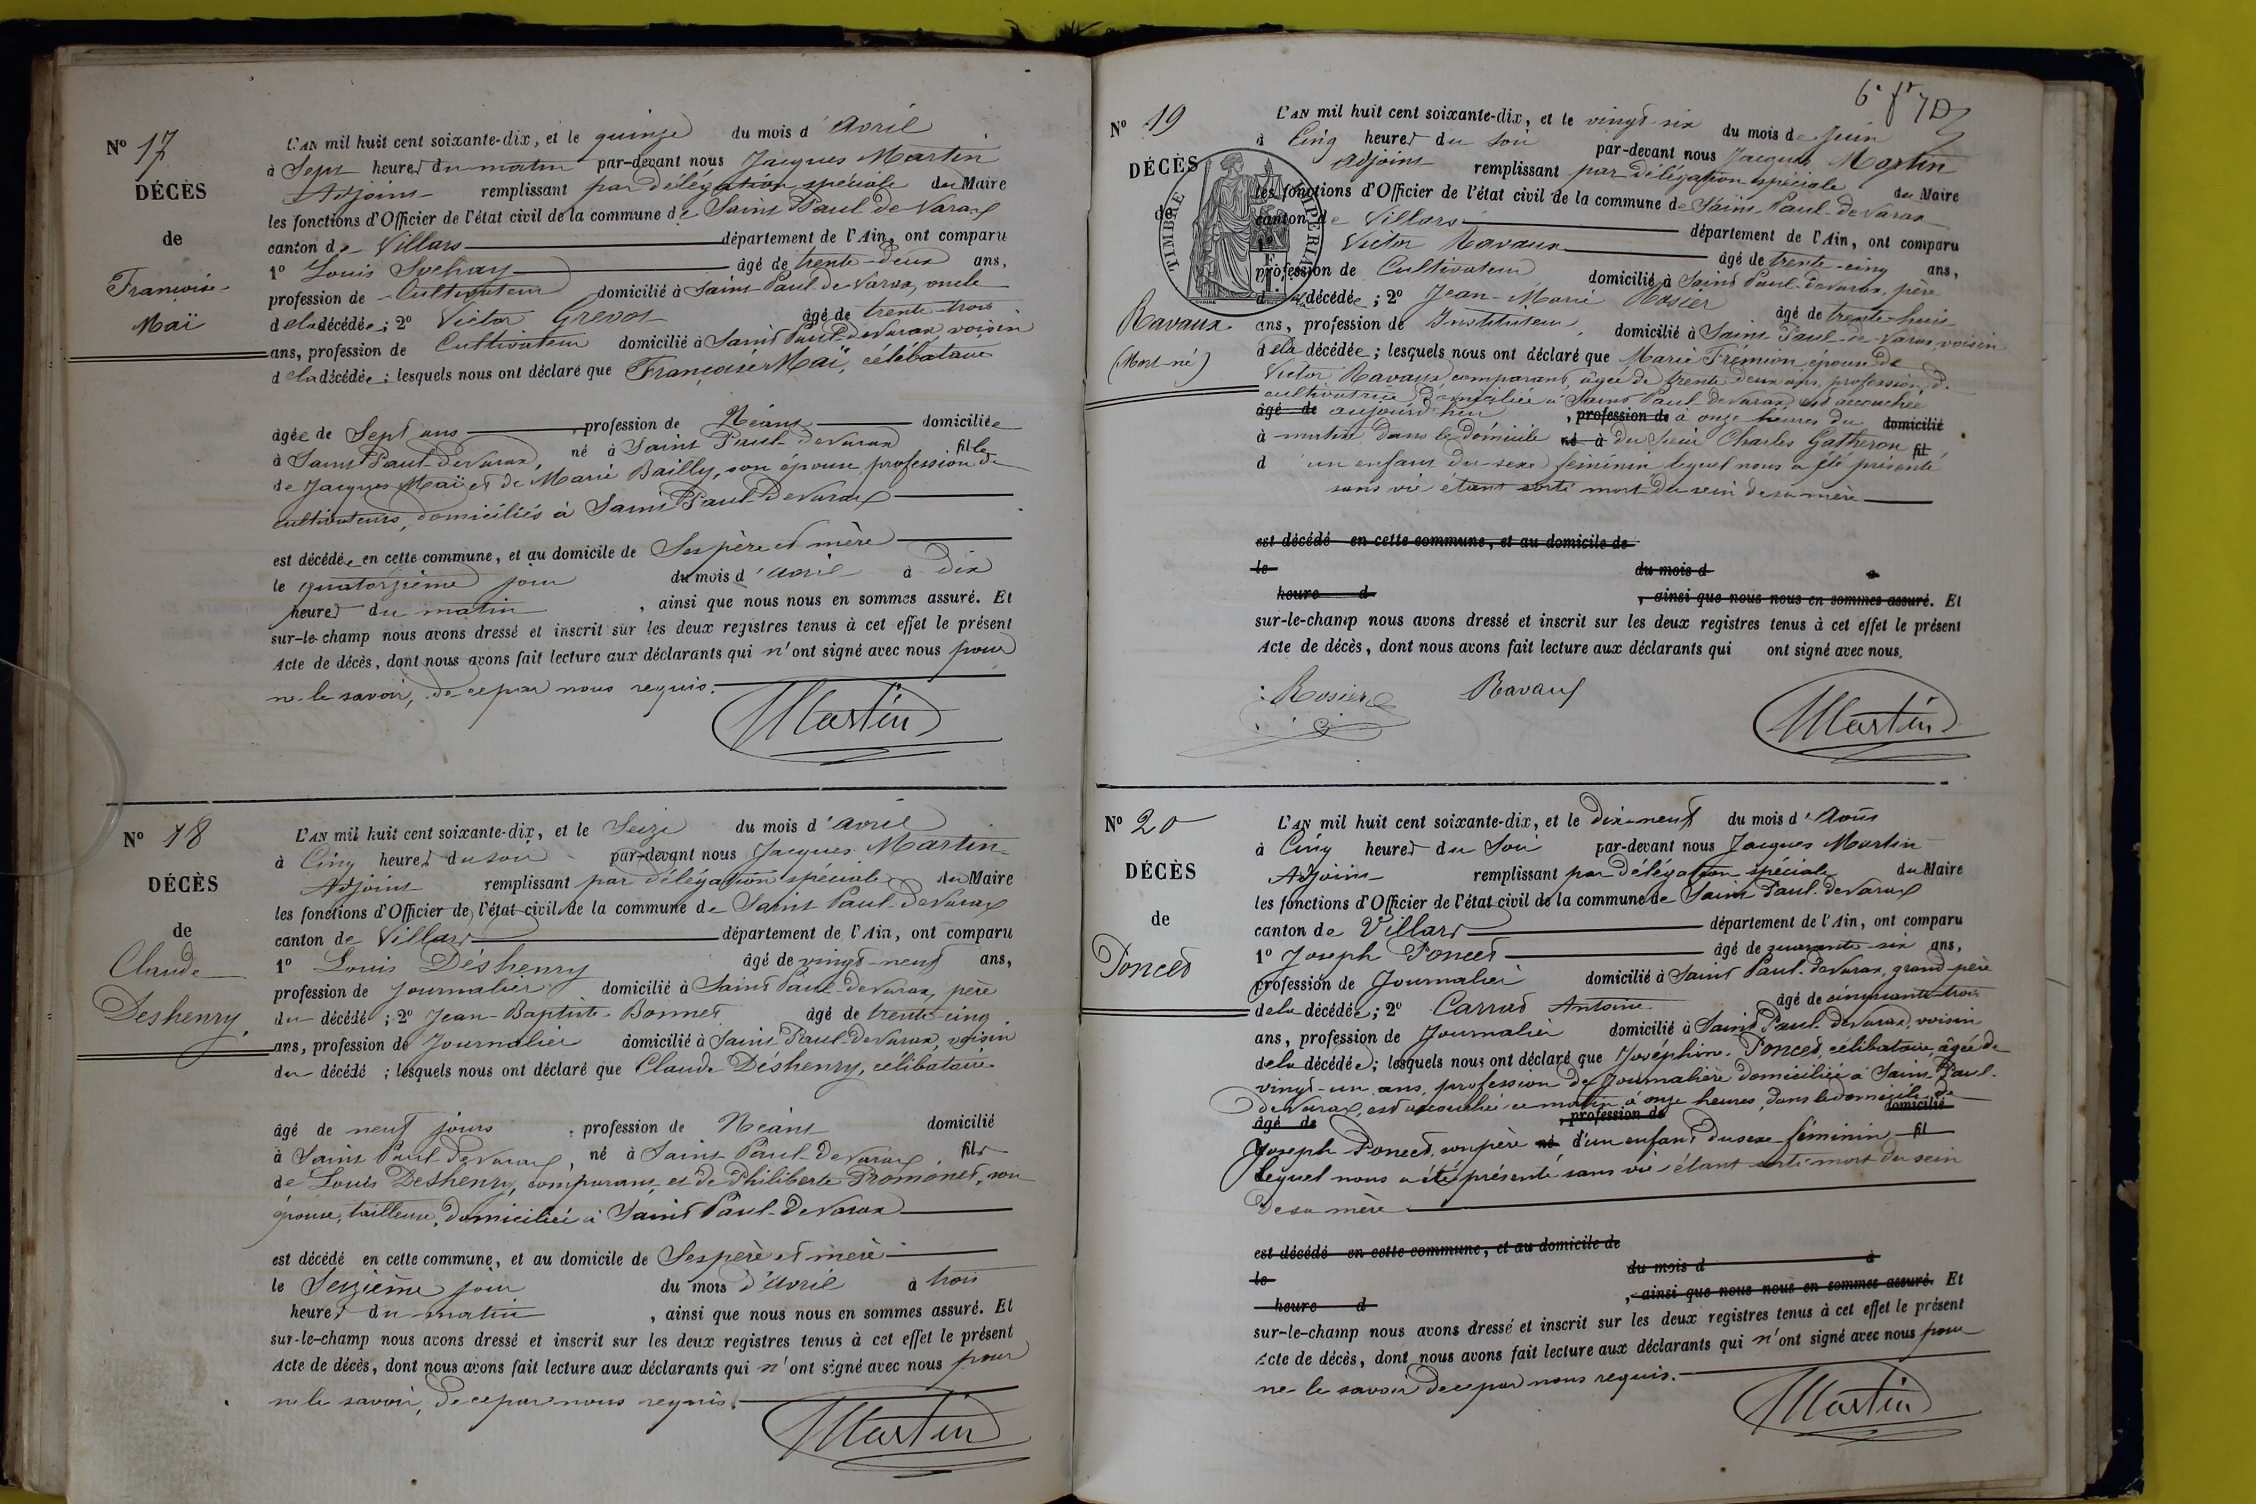 N° 17
DÉCÈS
de
Françoise
Maï
L'AN mil huit cent soixante-dix, et le quinze du mois d'avril
à Sept heures du matin par-devant nous Jacques Martin
Adjoint remplissant par délégation spéciale du Maire
les fonctions d'Officier de l'état civil de la commune de Saint Paul de Varax
canton de Villars département de l'Ain, ont comparu
1° Louis âgé de trente-deux ans,
profession de Cultivateur domicilié à Saint Paul de Varax, oncle
de la décédée ; 2° Victor Grevot âgé de trente-trois
ans, profession de Cultivateur domicilié à Saint Paul de Varax voisin
de la décédée ; lesquels nous ont déclaré que Françoise Maï, célibataire
âgée de Sept ans, profession de Néant domiciliée
à Saint Paul de Varax, né à Saint Paul de Varax fille
de Jacques Maï et de Marie Bailly, son épouse, profession de
cultivateurs, domiciliés à Saint Paul de Varax
est décédée en cette commune, et au domicile de Ses père et mère
le quatorzième jour du mois d'avril à dix
heures du matin, ainsi que nous nous en sommes assuré. Et
sur-le-champ nous avons dressé et inscrit sur les deux registres tenus à cet effet le présent
Acte de décès, dont nous avons fait lecture aux déclarants qui n'ont signé avec nous pour
ne le savoir, de ce par nous requis.
Martin
N° 18
DÉCÈS
de
Claude
Deshenry
L'AN mil huit cent soixante-dix, et le Seize du mois d'avril
à Cinq heures du soir par-devant nous Jacques Martin
Adjoint remplissant par délégation spéciale du Maire
les fonctions d'Officier de l'état civil de la commune de Saint Paul de Varax
canton de Villars département de l'Ain, ont comparu
1° Louis Déshenry âgé de vingt-neuf ans,
profession de Journalier domicilié à Saint Paul de Varax, père
du décédé ; 2° Jean-Baptiste Bonnet âgé de trente-cinq
ans, profession de Journalier domicilié à Saint Paul de Varax, voisin
du décédé ; lesquels nous ont déclaré que Claude Déshenry, célibataire
âgé de neuf jours, profession de Néant domicilié
à Saint Paul de Varax, né à Saint Paul de Varax fils
de Louis Deshenry, comparant, et de Philiberte Promonet, son
épouse, tailleuse, domiciliée à Saint Paul de Varax
est décédé en cette commune, et au domicile de Ses père et mère
le Seizième jour du mois d'avril à trois
heures du matin, ainsi que nous nous en sommes assuré. Et
sur-le-champ nous avons dressé et inscrit sur les deux registres tenus à cet effet le présent
Acte de décès, dont nous avons fait lecture aux déclarants qui n'ont signé avec nous pour
ne le savoir, de ce par nous requis.
Martin
N° 19
DÉCÈS
de
TIMBRE IMPERIAL
Ravaux
(Mort-né)
L'AN mil huit cent soixante-dix, et le vingt-six du mois de juin
à Cinq heures du soir par-devant nous Jacques Martin
Adjoint remplissant par délégation spéciale du Maire
les fonctions d'Officier de l'état civil de la commune de Saint-Paul-de Varax
canton de Villars département de l'Ain, ont comparu
1° Victor Ravaux âgé de trente-cinq ans,
profession de Cultivateur domicilié à Saint Paul de Varax, père
d décédée ; 2° Jean-Marie Rosier âgé de trente-huit
ans, profession de Instituteur, domicilié à Saint-Paul-de Varax, voisin
de la décédée ; lesquels nous ont déclaré que Marie Frémion, épouse de
Victor Ravaux, comparant, âgée de trente deux ans, profession de
cultivatrice, domiciliée à Saint Paul de Varax, est accouchée
âgé de aujourd'hui, profession de à onze heures du domicilié
à matin dans le domicile né à du sieur Charles Gatheron fil
d un enfant du sexe féminin lequel nous a été présenté
sans vie étant sorti mort du sein de sa mère
est décédé en cette commune, et au domicile de
le du mois d à
heure d, ainsi que nous nous en sommes assuré. Et
sur-le-champ nous avons dressé et inscrit sur les deux registres tenus à cet effet le présent
Acte de décès, dont nous avons fait lecture aux déclarants qui ont signé avec nous.
Rosier Ravaux
Martin
N° 20
DÉCÈS
de
Poncet
L'AN mil huit cent soixante-dix, et le dix-neuf du mois d'Août
à Cinq heures du Soir par-devant nous Jacques Martin
Adjoint remplissant par délégation spéciale du Maire
les fonctions d'Officier de l'état civil de la commune de Saint Paul de Varax
canton de Villars département de l'Ain, ont comparu
1° Joseph Poncet âgé de quarante-six ans,
profession de Journalier domicilié à Saint Paul de Varax, grand père
de la décédée ; 2° Carrut Antoine âgé de cinquante-trois
ans, profession de Journalier domicilié à Saint Paul de Varax, voisin
de la décédée ; lesquels nous ont déclaré que Joséphine Poncet, célibataire, âgée de
vingt-un ans, profession de Journalière domiciliée à Saint-Paul-
de Varax, est accouchée ce matin, à onze heures, dans le domicile de
âgé de profession de domicilié
Joseph Poncet, son père né d'un enfant du sexe féminin fil
lequel nous a été présenté sans vie étant sorti mort du sein
de sa mère
est décédé en cette commune, et au domicile de
le du mois d à
heure d, ainsi que nous nous en sommes assuré. Et
sur-le-champ nous avons dressé et inscrit sur les deux registres tenus à cet effet le présent
Acte de décès, dont nous avons fait lecture aux déclarants qui n'ont signé avec nous pour
ne le savoir de ce par nous requis.
Martin